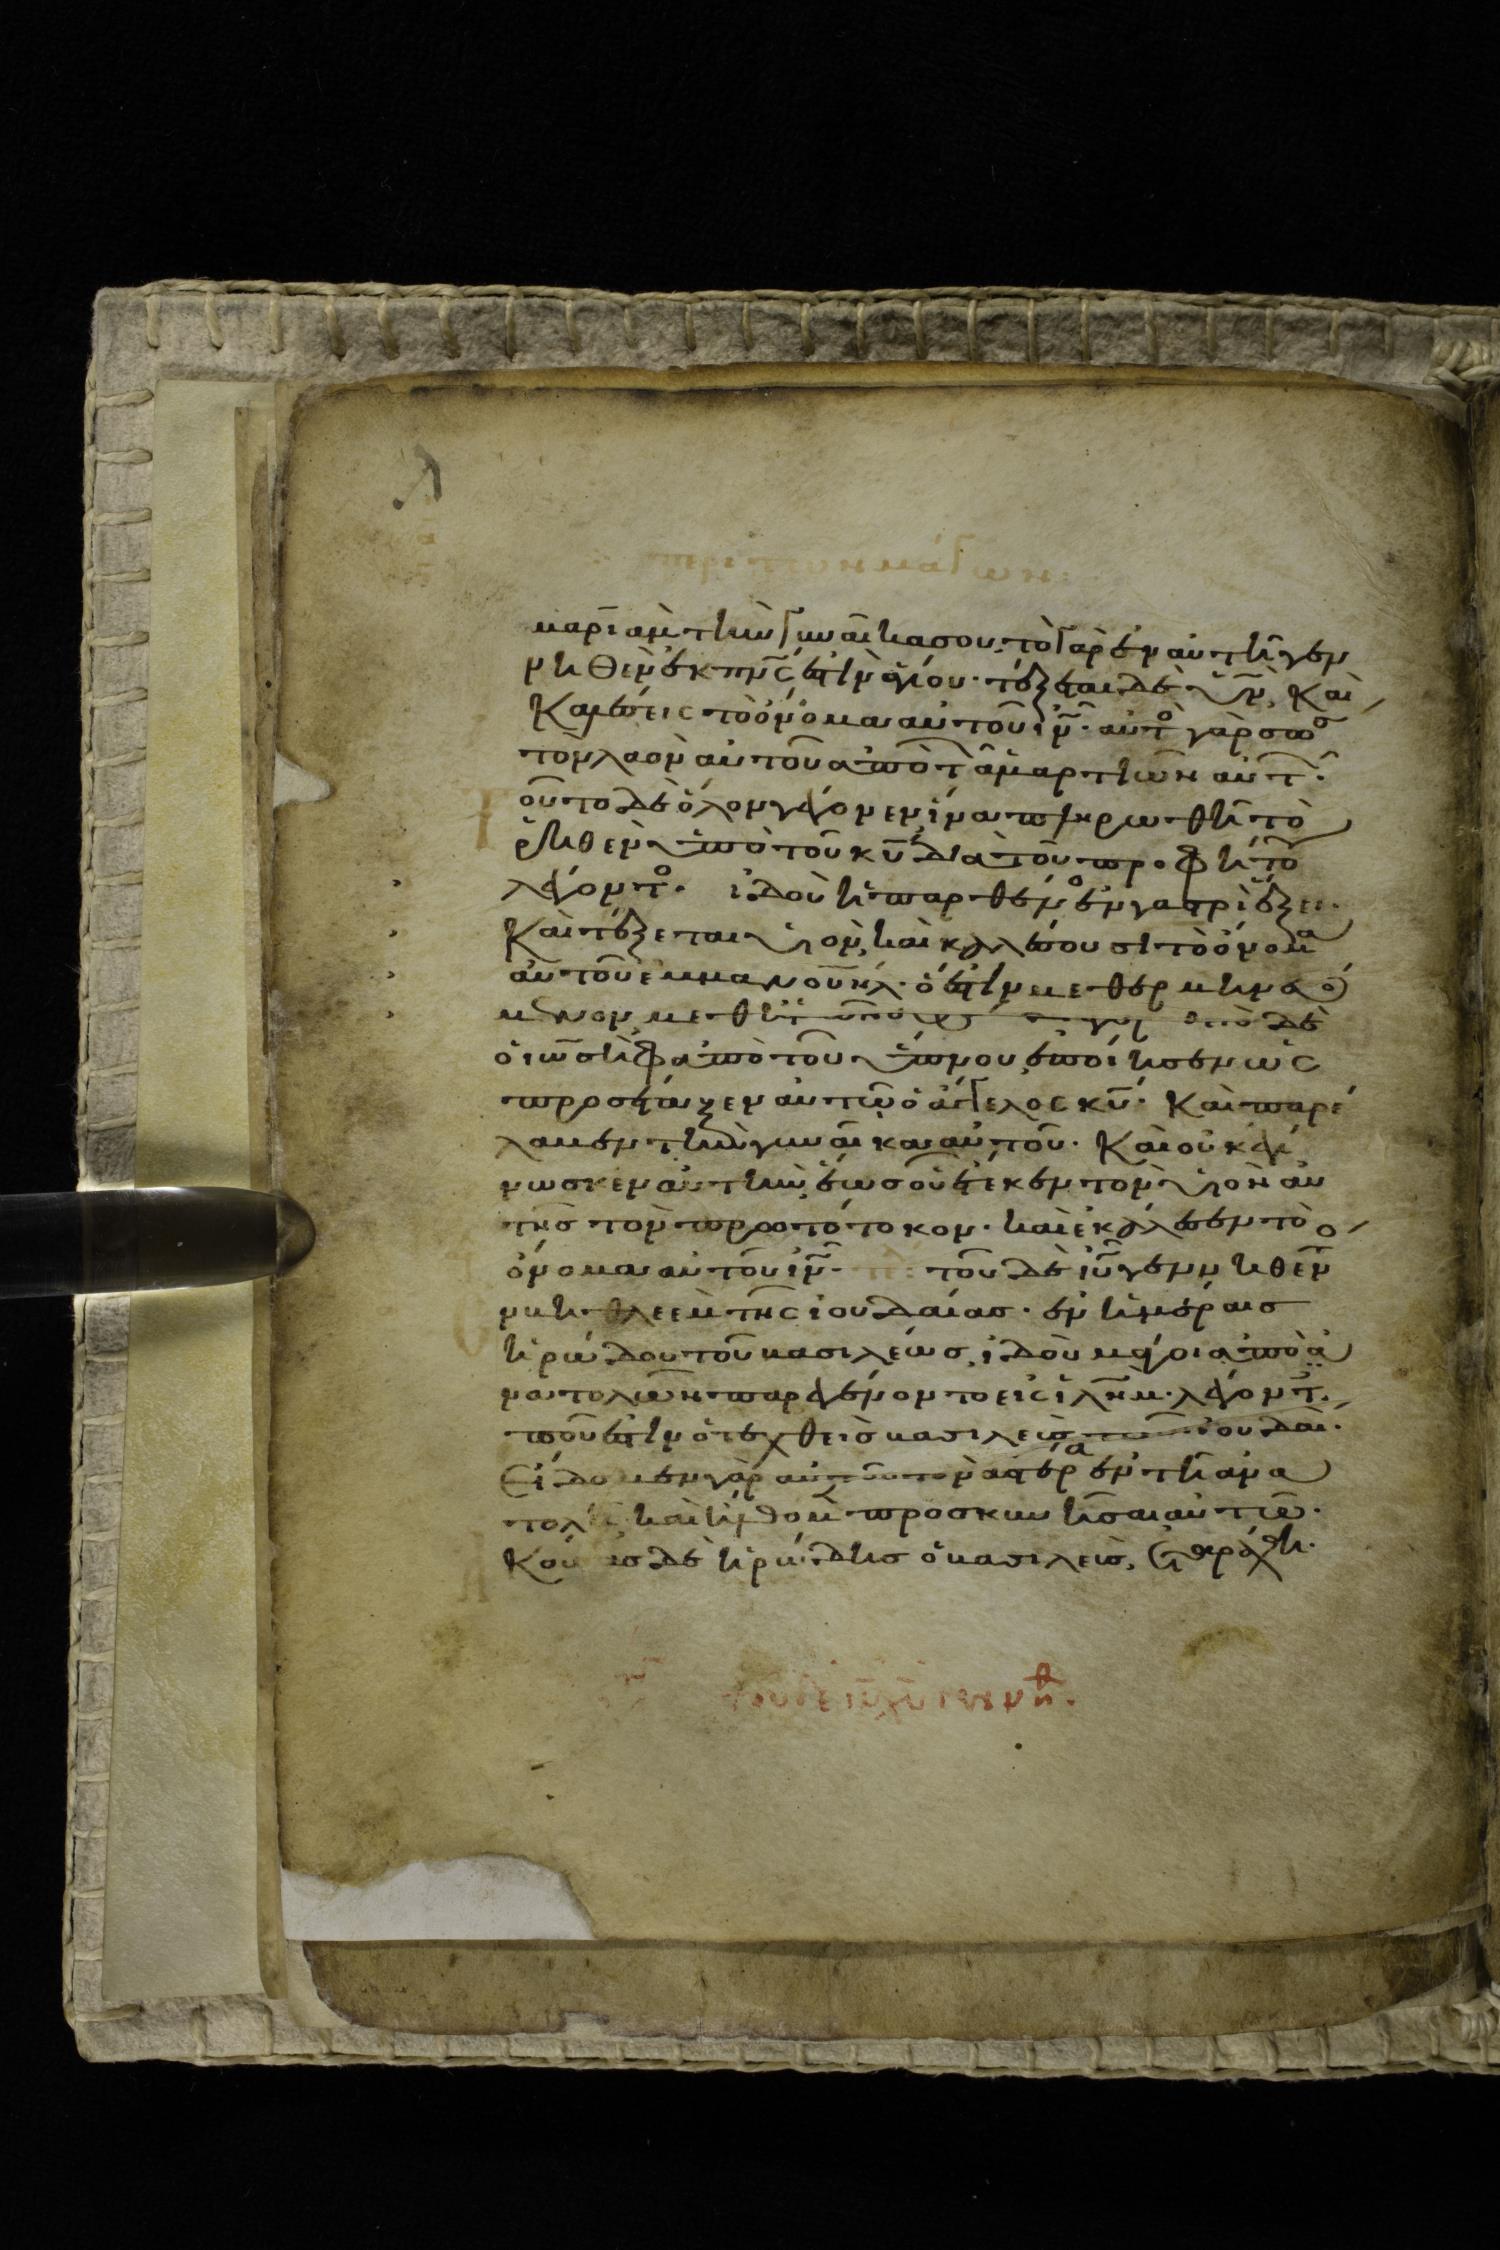 μαριὰμ τὴν γυναῖκα σου· τὸ γὰρ ἐν αὐτῆ γεν
νηθὲν ἐκ πνς ἐστὶν ἁγίου· τέξεται δὲ υν, καὶ
καλέσεις τὸ ὄνομα αὐτοῦ ιν· αὐτο γὰρ σωσ
τὸν λαὸν αὐτοῦ ἀπὸ τ ἁμαρτιῶν αὐτ·
οῦτο δὲ ὅλον γέγονεν ἵνα πληρωθῆ τὸ
ῥηθὲν ὑπὸ τοῦ κυ διὰ τοῦ προφήτο
λέγοντο· ἰδοὺ ἡ παρθένο ἐν γαστρὶ ἕξει·
καὶ τέξεται υἱὸν, καὶ καλέσουσι τὸ ὄνομα
αὐτοῦ ἐμμανουὴλ· ὅ ἐστὶν μεθερμηνευό
μενον, μεθ δὲ
ὁ ἰωσὴφ ἀπὸ τοῦ ὕπνου, ἐποίησεν ὡς
προσέταξεν αὐτῶ ὁ ἄγγελος κυ· καὶ παρέ
λαβεν τὴν γυναῖκα αὐτοῦ· καὶ οὐκ ἐγί
νωσκεν αὐτὴν, ἕως οὗ ἔτεκεν τὸν υἱὸν αὐ
τῆς τὸν πρωτότοκον· καὶ ἐκάλεσεν τὸ
ὄνομα αὐτοῦ ιν· τοῦ δὲ ιυ γεννηθέν
βηθλεὲμ τῆς ἰουδαίας· ἐν ἡμέραις
ἡρώδου τοῦ βασιλέως, ἰδοὺ μάγοι ἀπὸ ἀ
νατολῶν παρεγένοντο εἰς ἱλημ· λέγοντ·
ποῦ ἐστὶν ὁ τεχθεὶς βασιλεὺς τῶν ἰουδαί·
εἴδομεν γὰρ αὐτοῦ τὸν ἀστέρα ἐν τῆ ἀνα
τολῆ, καὶ ἤλθομ προσκυνῆσαι αὐτῶ·
κού ας δὲ ἡρώδης ὁ βασιλεὺς, ἐταράχθη·